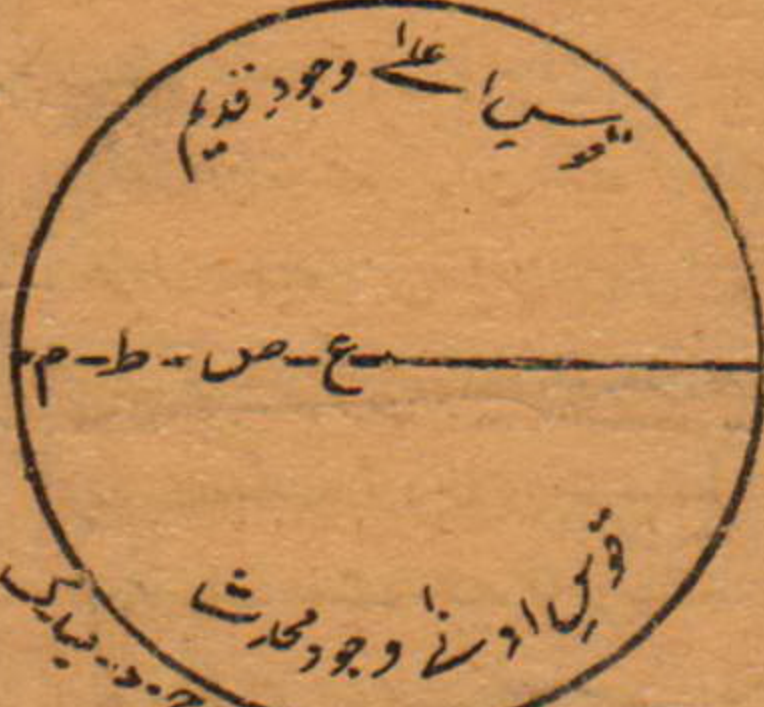 قوسِ اعلےٰ وجودِ قدیم
ع - ص - ط - م
قوسِ ادنےٰ وجود محدث